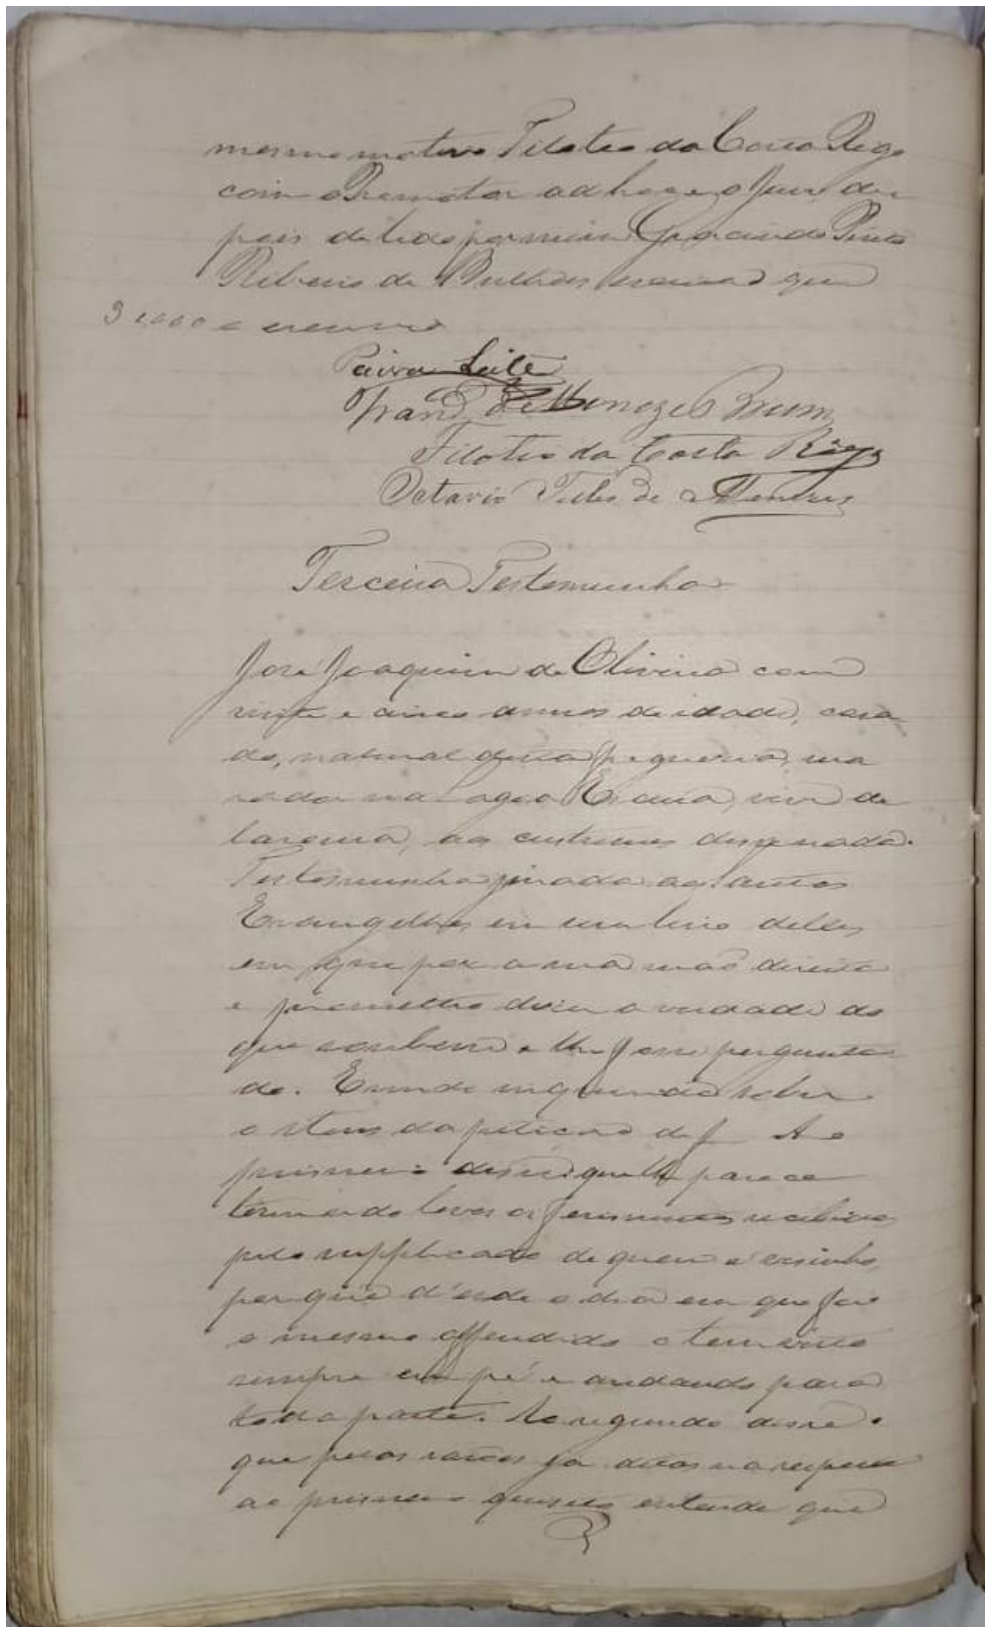 mesmo motivo Filoteo da Costa Rego
com o Promotor ad hoc e o Juiz de
pois de lido por mim Graciindo Pinto
Ribeiro de Bulhões escrivão que
3 1000 o escrevi
Paiva Leite
Franc.º de Menezes Brum
Filoteo da Costa Rego
Octavio Telles de Menezes
Terceira Testemunha
José Joaquim de Oliveira com
vinte e cinco annos de idade, casa
do, natural desta freguesia, mo
rador na Lagoa vive de
lavoura, aos custumes disse nada.
Testemunha jurada aos Santos
Evangelhos em um livro delles
em que poz a sua mão direita
e prometteo dizer a verdade do
que soubesse e lhe fosse pergunta
do. E sendo inquirido sobre
o itens da petição de f Ao
primeiro disse que lhe parece
terem sido leves os ferimentos recebidos
pelo supplicado de quem é visinho,
por que d'esde o dia em que foi
o mesmo offendido o tem visto
sempre em pé e andando para
toda parte. Ao segundo disse
que pelas rasões ja ditas na resposta
ao primeiro quesito entende que